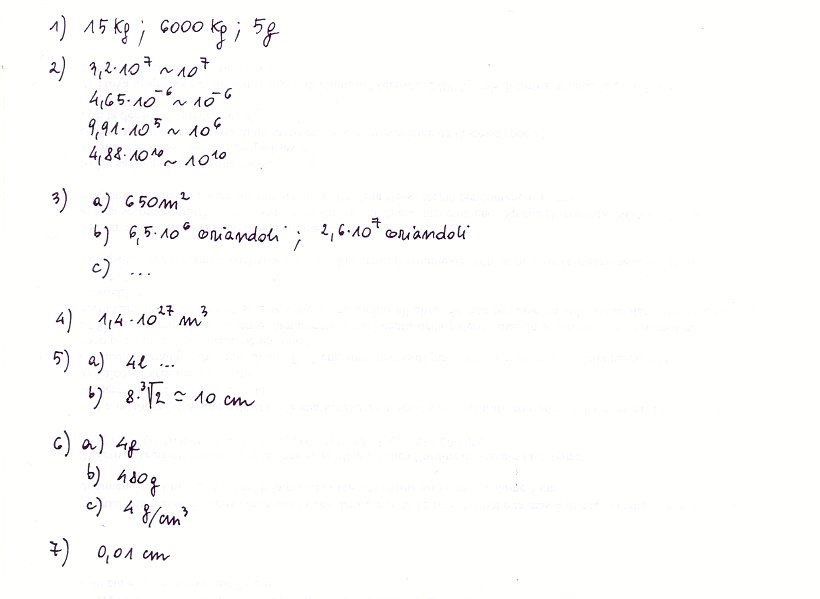 1) 15 Kg ; 6000 Kg ; 5g
2) 3,2·10⁷ ~ 10⁷
4,65·10⁻⁶ ~ 10⁻⁶
9,91·10⁵ ~ 10⁶
4,88·10¹⁰ ~ 10¹⁰
3) a) 650m²
b) 6,5·10⁶ coriandoli ; 2,6·10⁷ coriandoli
c) ...
4) 1,4·10²⁷ m³
5) a) 4l ...
b) 8·³√2 ≃ 10 cm
6) a) 4g
b) 480g
c) 4 g/cm³
7) 0,01 cm